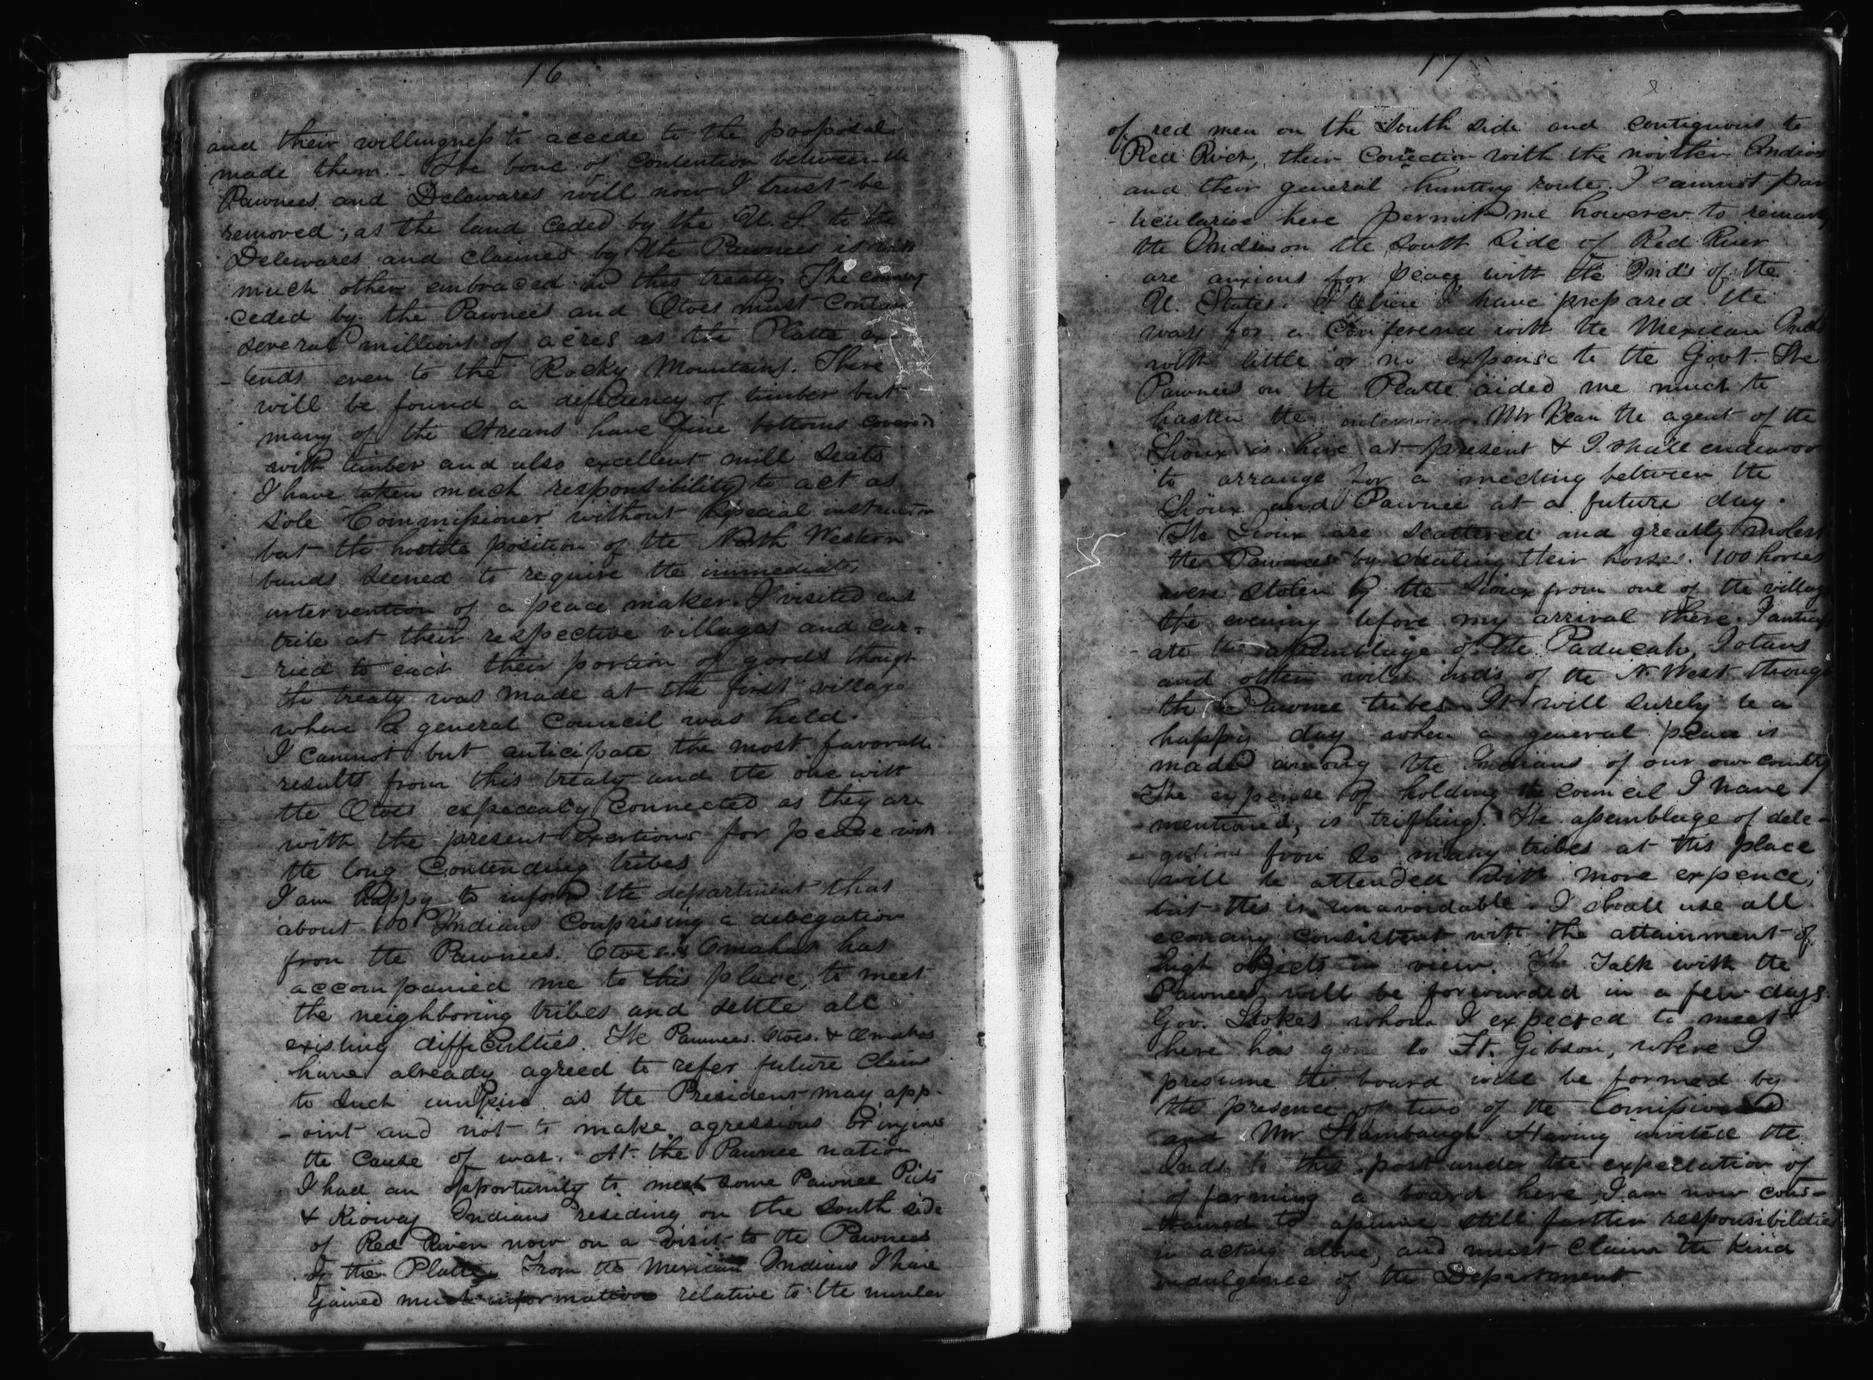 16
and their willingness to accede to the proposal
made them. - The bone of contention between the
Pawnees and Delewares will now I trust be
removed; as the land ceded by the U. S. to the
Delewares and claimed by the Pawnees is with
much other embraced in this treaty. The country
ceded by the Pawnees and Otoes must contain
several millions of acres as the Platte ex
- tends even to the Rocky Mountains. There
will be found a deficiency of timber but
many of the streams have fine bottoms covered
with timber and also excellent mill seats
I have taken much responsibility to act as
sole Commissioner without special instruction
but the hostile position of the North Western
bands seemed to require the immediate
intervention of a peace maker. I visited each
tribe at their respective villages and car-
- ried to each their portion of goods though
the treaty was made at the first village
where a general Council was held.
I cannot but anticipate the most favorable
results from this treaty and the one with
the Otoes especially connected as they are
with the present exertions for peace with
the long Contending tribes
I am happy to inform the department that
about 100 Indians Comprising a delegation
from the Pawnees. Otoes & Omahas has
accompanied me to this place, to meet
the neighboring tribes and settle all
existing difficulties. The Pawnees. Otoes. & Omahas
have already agreed to refer future Claims
to such umpire as the President may app-
- oint and not to make agressions or injuries
the cause of war. At the Pawnee nation
I had an opportunity to meet some Pawnee Picts
& Kioway Indians residing on the south side
of Red River now on a visit to the Pawnees
of the Platte. From the Mexican Indians I have
gained much information relative to the number
17
of red men on the South side and contiguous to
Red River, their Conection with the northern Indians
and their general hunting route. I cannot par
- ticularise here permit me however to remark
the Indians on the South Side of Red River
are anxious for peace with the Ind's of the
U. States. I believe I have prepared the
way for a Conference with the Mexican Ind's
with little or no expense to the Govt. The
Pawnees on the Platte aided me much to
hasten the interview. Mr Bean the agent of the
Sioux is here at present & I shall endeavor
to arrange for a meeting between the
Sioux and Pawnee at a future day.
The Sioux are scattered and greatly molest
the Pawnees by stealing their horses. 100 horses
were stolen by the Sioux from one of the villages
the evening before my arrival there. I anticip
- ate the assemblage of the Paducah, Iotans
and other wild ind's of the N. West through
the Pawnee tribes. It will surely be a
happy day when a general peace is
made among the Indians of our own country
The expense of holding the council I have
mentioned, is trifling. The assemblage of dele-
- gations from so many tribes at this place
will be attended with more expence,
but this is unavoidable. I shall use all
economy consistent with the attainment of
high objects in view. The Talk with the
Pawnees will be forwarded in a few days.
Gov. Stokes whom I expected to meet
here has gone to Ft. Gibson, where I
presume the board will be formed by
the presence of two of the Comissioners
and Mr Stambaugh. Having invited the
Inds to this post under the expectation of
of forming a board here, I am now cons-
- trained to assume still farther responsibilities
in acting alone, and must claim the kind
indulgence of the Department